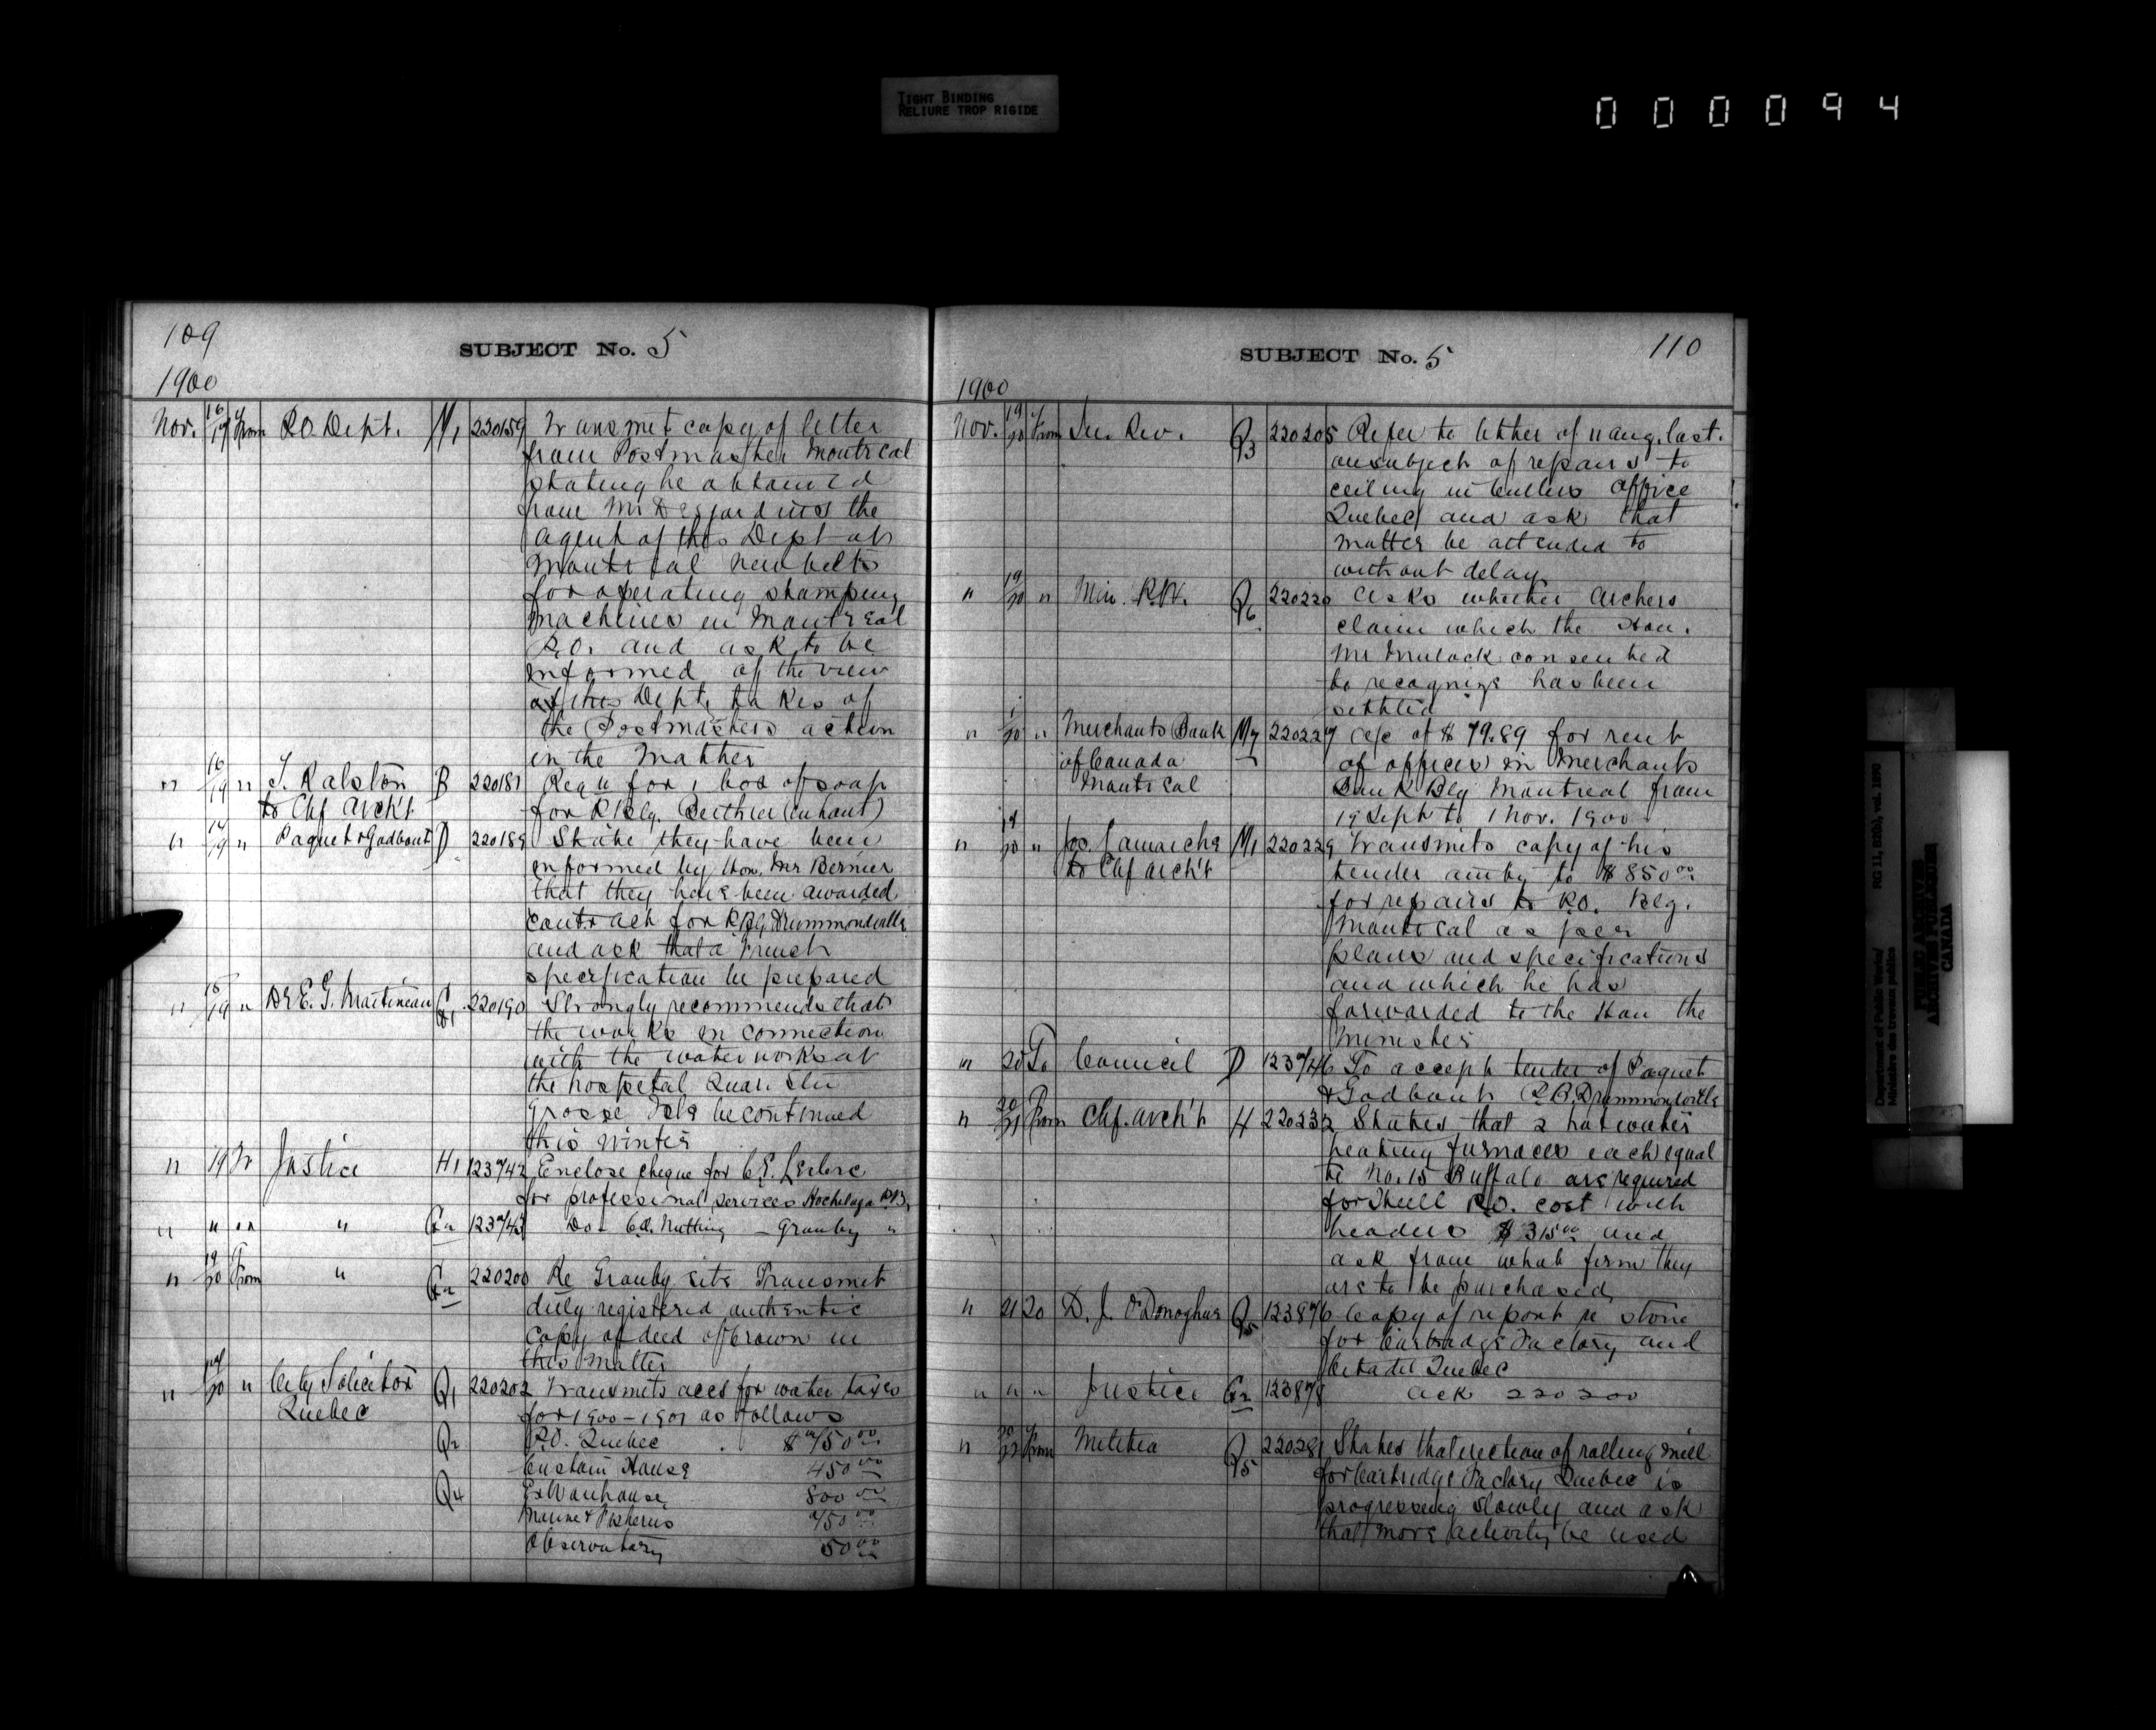 TIGHT BINDING
RELIURE TROP RIGIDE
000094
109
SUBJECT No. 5
1900
Nov. 16/19 From P.O. Dept. M1 220159 Transmit copy of letter
from Postmaster Montreal
stating he obtained
from Mr Desjardins the
agent of this Dept at
Montreal new belts
for operating stamping
machines in Montreal
P.O. and ask to be
informed of the view
of this Dept. takes of
the Postmasters action
in the Matter
" 16/19 " J. Ralston B 220187 Requ for 1 box of soap
to Chf Arch't for P Blg. Berthier (en haut)
" 17/19 " Paquet & Godbout D 220189 State they have been
informed by Hon. Mr Bernier
that they have been awarded
contract for P Blg Drummondville
and ask that a French
specification be prepared
" 15/19 " Dr E. G. Martineau G1 220190 Strongly recommends that
the works in connection
with the waterworks at
the hospital Quar. Stn
Grosse Isle be continued
this winter
" 19 To Justice H1 123742 Enclose cheque for C.E. Leclerc
for professional services Hochelaga P.B.
" " " " G2 123743 Do - C.A. Nutting - Granby "
" 19/20 From " G2 220200 Re Granby site Transmit
duly registered authentic
copy of deed of Crown in
this matter
" 17/20 " City Solicitor Q1 220202 Transmits accs for water taxes
Quebec for 1900-1901 as follows
Q2 P.O. Quebec $ 750 00
Custom House 450 00
Q4 Ex Warehouse 800 00
Marine & Fisheries 750 00
Observatory 50 00
SUBJECT No. 5
110
1900
Nov. 19/20 From In. Rev. Q3 220205 Refer to letter of 11 aug. last.
on subject of repairs to
ceiling in Cullers office
Quebec and ask that
matter be attended to
without delay
" 19/20 " Min. P.W. Q6 220220 Asks whether Archers
claim which the Hon.
Mr Mulock consented
to recognize has been
settled
" 1/20 " Merchants Bank M7 220227 a/c of $ 79.89 for rent
of Canada of offices in Merchants
Montreal Bank Blg Montreal from
19 Sept to 1 Nov. 1900
" 19/20 " Jos. Lamarche M1 220229 Transmits copy of his
to Chf Arch't tender amtg to $ 850 00
for repairs to P.O. Blg.
Montreal as per
plans and specifications
and which he has
forwarded to the Hon the
Minister
" 20 To Council D 123746 To accept tender of Paquet
& Godbout P.B. Drummondville
" 20/21 From Chf. Arch't H 220232 States that 2 hot water
heating furnaces each equal
to No. 15 Buffalo are required
for Hull P.O. cost with
headers $ 315 00 and
ask from what firm they
are to be purchased
" 21 To D. J. O'Donoghue Q5 123876 Copy of report re stone
for Cartridge Factory and
Citadel Quebec
" " " Justice G2 123878 ack 220200
" 20/22 From Militia Q5 220281 States that erection of rolling mill
for Cartridge Factory Quebec is
progressing slowly and ask
that more activity be used
Department of Public Works/
Ministère des travaux publics
RG 11, B2(b), vol. 1890
PUBLIC ARCHIVES
ARCHIVES PUBLIQUES
CANADA